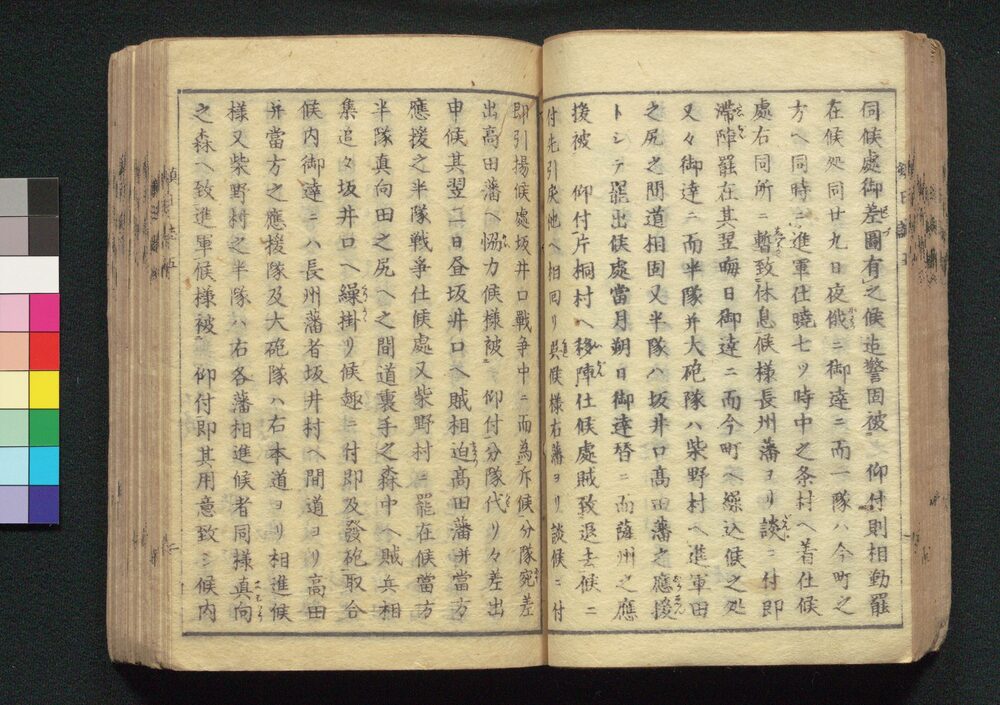 伺候處御差圖有之候迄警固被　仰付則相勤罷
在候処同廿九日夜俄ニ御達ニ而一隊ハ今町之
方ヘ同時ニ進軍仕曉七ツ時中之条村ヘ着仕候
處右同所ニ暫致休息候様長州藩ヨリ談ニ付即
滞陣罷在其翌晦日御達ニ而今町ヘ繰込候之処
又々御達ニ而半隊并大砲隊ハ柴野村ヘ進軍田
之尻之間道相固又半隊ハ坂井口高田藩之應援
トシテ罷出候處當月朔日御達替ニ而薩州之應
援被　仰付片桐村ヘ移陣仕候處賊致退去候ニ
付先引夾他ヘ相回リ候様右藩ヨリ談候ニ付
即引揚候處坂井口戰争中ニ而為斥候分隊宛差
出高田藩ヘ恊力候様被　仰付分隊代リ々差出
申候其翌二日昼坂井口ヘ賊相迫高田藩并當方
應援之半隊戦争仕候處又柴野村ニ罷在候當方
半隊真向田之尻ヘ之間道裏手之森中ヘ賊兵相
集追々坂井口ヘ繰掛リ候趣ニ付即及發砲取合
候内御達ニハ長州藩者坂井村ヘ間道ヨリ高田
并當方之應援隊及大砲隊ハ右本道ヨリ相進候
様又柴野村之半隊ハ右各藩相進候者同様真向
之森ヘ致進軍候様被　仰付即其用意致シ候内